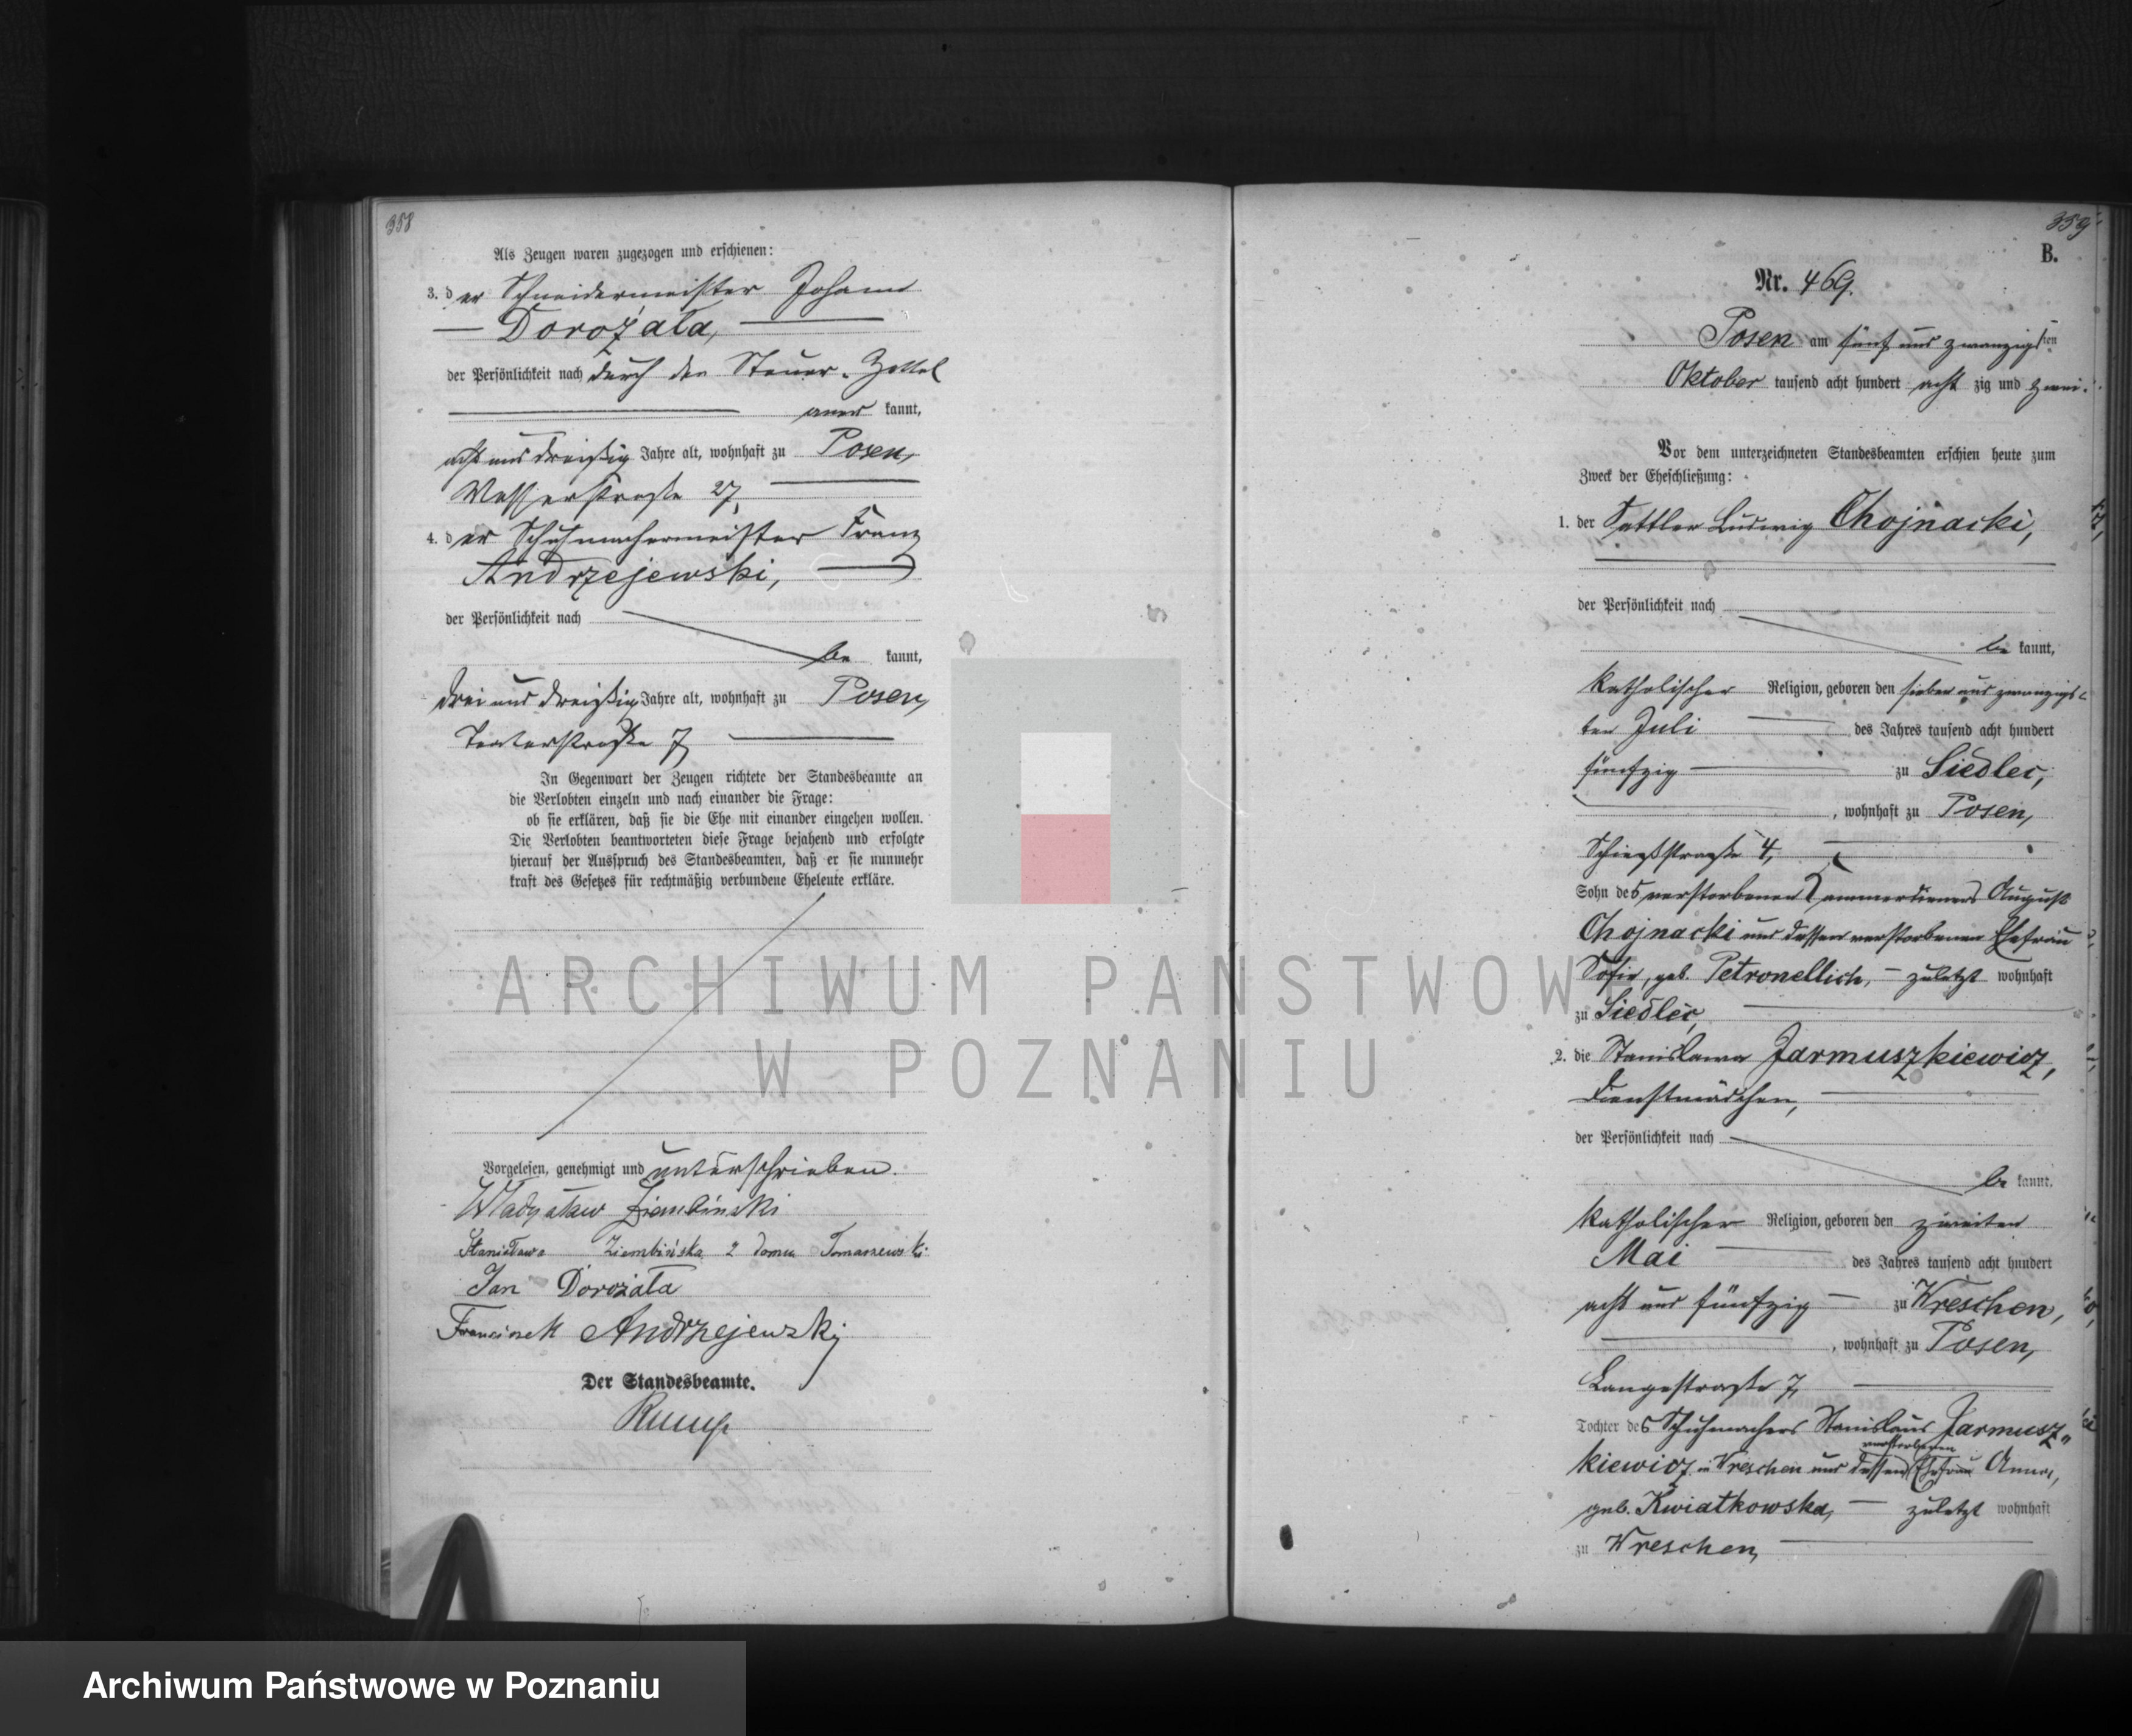 358
Als Zeugen waren zugezogen und erschienen:
3. der Schneidermeister Johann
Dorożała,
der Persönlichkeit nach durch den Steuer-Zettel
aner kannt,
acht und dreißig Jahre alt, wohnhaft zu Posen,
Wasserstraße 27,
4. der Schuhmachermeister Franz
Andrzejewski,
der Persönlichkeit nach
be kannt,
drei und dreißig Jahre alt, wohnhaft zu Posen,
7,
In Gegenwart der Zeugen richtete der Standesbeamte an
die Verlobten einzeln und nach einander die Frage:
ob sie erklären, daß sie die Ehe mit einander eingehen wollen.
Die Verlobten beantworteten diese Frage bejahend und erfolgte
hierauf der Ausspruch des Standesbeamten, daß er sie nunmehr
kraft des Gesetzes für rechtmäßig verbundene Eheleute erkläre.
Vorgelesen, genehmigt und unterschrieben.
Władysław Ziembiński
Stanisława Ziembińska z domu Tomaszewski
Jan Dorożała
Franciszek Andrzejewski
Der Standesbeamte.
359
B.
Nr. 469.
Posen am fünf und zwanzigsten
Oktober tausend acht hundert acht zig und zwei.
Vor dem unterzeichneten Standesbeamten erschien heute zum
Zweck der Eheschließung:
1. der Sattler Ludwig Chojnacki,
der Persönlichkeit nach
be kannt,
katholischer Religion, geboren den sieben und zwanzigs-
ten Juli des Jahres tausend acht hundert
fünfzig zu Siedlec,
, wohnhaft zu Posen,
Schießstraße 4,
Sohn des verstorbenen Kammerdieners August
Chojnacki und dessen verstorbenen Ehefrau
Sofie, geb. Petronellich, zuletzt wohnhaft
zu Siedlec,
2. die Stanislawa Jarmuszkiewicz,
Dienstmädchen,
der Persönlichkeit nach
be kannt,
katholischer Religion, geboren den zweiten
Mai des Jahres tausend acht hundert
acht und fünfzig zu Wreschen,
, wohnhaft zu Posen,
Langestraße 7,
Tochter des Schuhmachers Stanislaus Jarmusz-
verstorbenen
kiewicz in Wreschen und dessen Ehefrau Anna,
geb. Kwiatkowska, zuletzt wohnhaft
zu Wreschen,
ARCHIWUM PAŃSTWOW
W POZNANIU
Archiwum Państwowe w Poznaniu